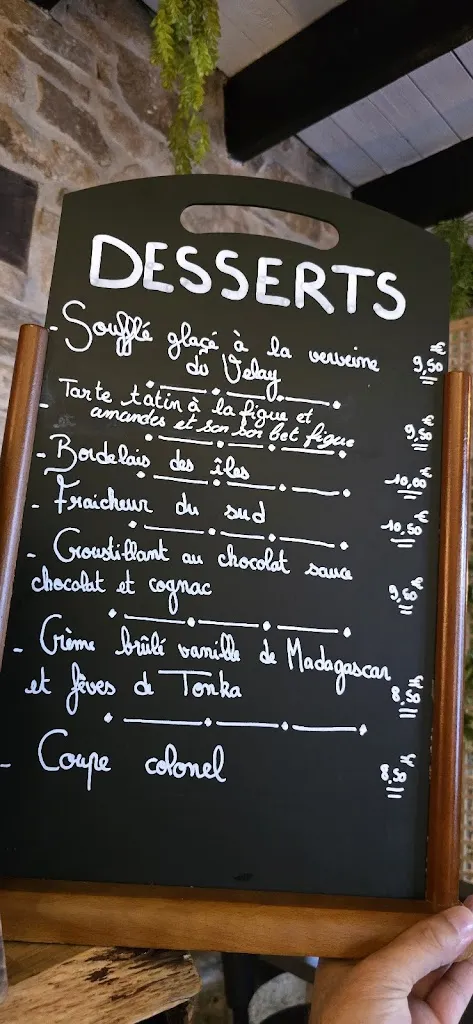 DESSERTS
- Soufflé glaçé à la verveine
du Velay 9,50 €
- Tarte tatin à la figue et
amandes et son sorbet figue 9,50
- Bordelais des îles 10,00 €
- Fraicheur du sud 10,50 €
- Croustillant au chocolat sauce
chocolat et cognac 9,50 €
- Crème brûlé vanille de Madagascar
et fèves de Tonka 8,50 €
- Coupe colonel 8,50 €